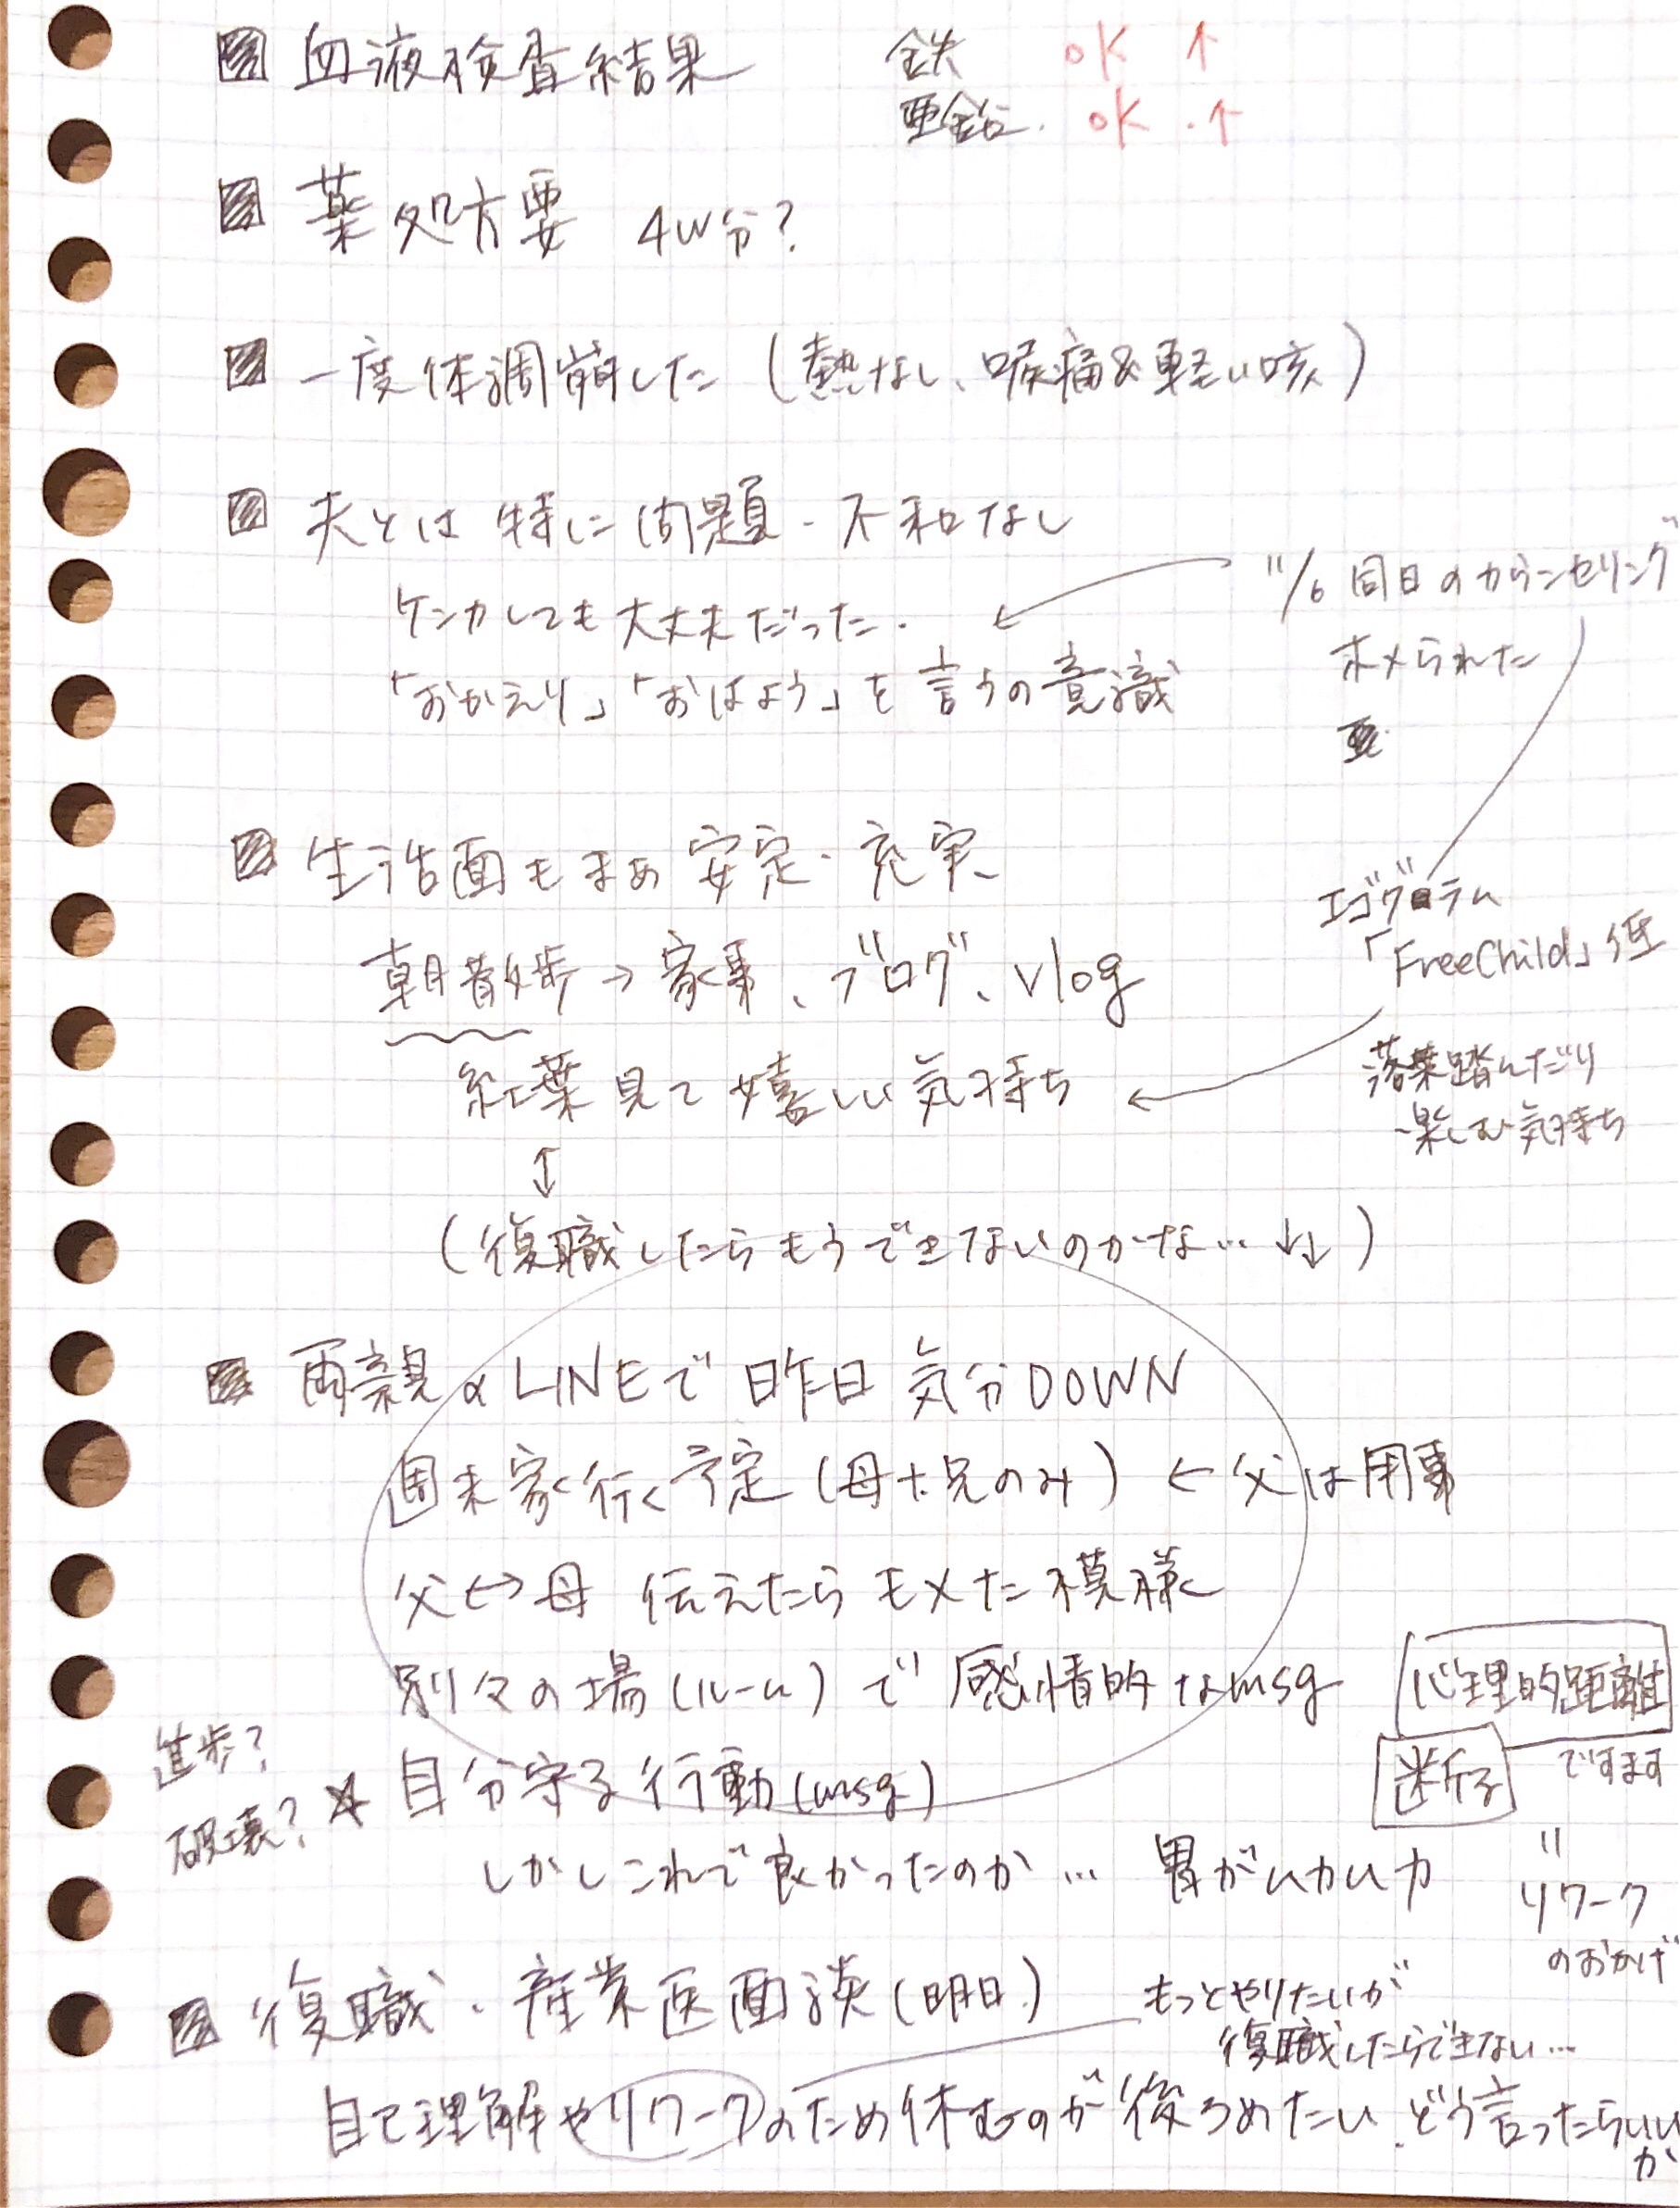 血液検査結果 鉄 OK ↑
亜鉛. OK.↑
薬処方要 4W分?
一度体調崩した (熱なし、喉痛&軽い咳)
夫とは特に問題・不和なし
ケンカしても大丈夫だった.
「おかえり」「おはよう」を言うの意識
11/6 同日のカウンセリング
ホメられた
生活面もまあ安定・充実
朝散歩→家事、ブログ、vlog
紅葉見て嬉しい気持ち
↕
(復職したらもうできないのかな… ↓↓)
エゴグラム
「FreeChild」低
落葉踏んだり
楽しむ気持ち
両親のLINEで昨日気分DOWN
週末家行く予定 (母+兄のみ) ← 父は用事
父↔母 伝えたらモメた模様
別々の場(ルーム)で感情的なmsg
心理的距離
進歩?
破壊?
☆自分守る行動(msg)
断る
ですます
しかしこれで良かったのか… 胃がムカムカ
"
リワーク
のおかげ
復職・産業医面談(明日)
もっとやりたいが
復職したらできない…
自己理解やリワークのため休むのが後ろめたい.どう言ったらいい
か